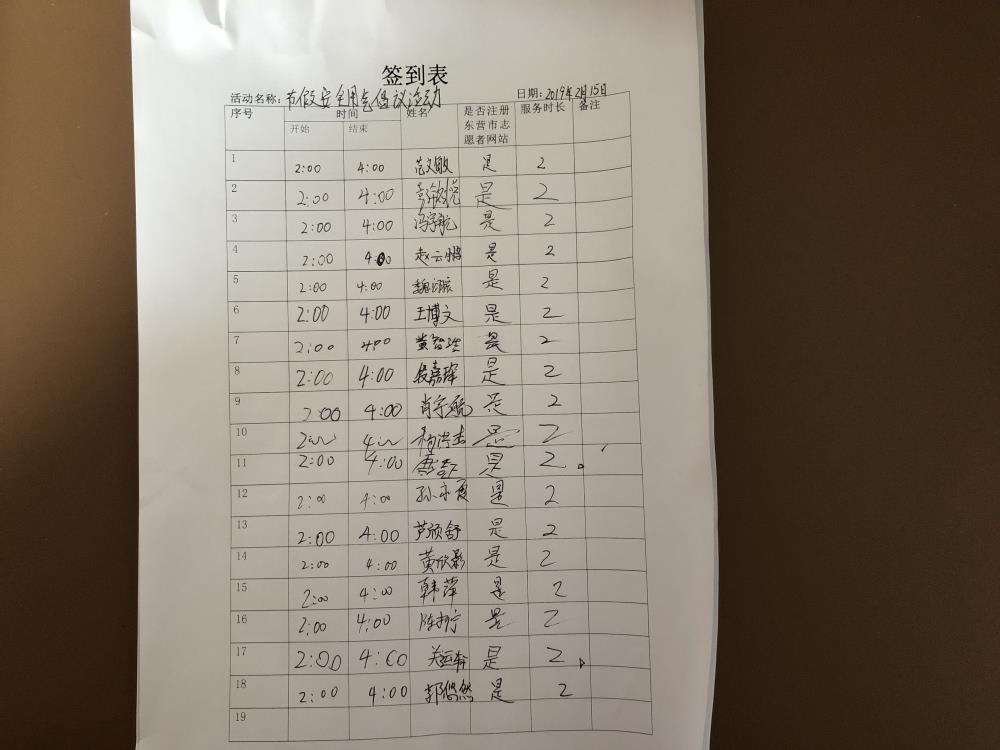 签到表
活动名称: 节假安全用气倡议活动 日期: 2019年2月15日
序号 时间 姓名 是否注册东营市志愿者网站 服务时长 备注
开始 结束
1 2:00 4:00 范文敏 是 2
2 2:00 4:00 是 2
3 2:00 4:00 冯宇航 是 2
4 2:00 4:00 赵云鹏 是 2
5 2:00 4:00 魏 是 2
6 2:00 4:00 王博文 是 2
7 2:00 4:00 黄 是 2
8 2:00 4:00 嘉 是 2
9 2:00 4:00 肖宇航 是 2
10 杨洪杰 是 2
11 2:00 4:00 是 2
12 2:00 4:00 孙 是 2
13 2:00 4:00 芦颀舒 是 2
14 2:00 4:00 黄欣影 是 2
15 2:00 4:00 韩萍 是 2
16 2:00 4:00 陈 是 2
17 2:00 4:00 关 是 2
18 2:00 4:00 郭悠然 是 2
19